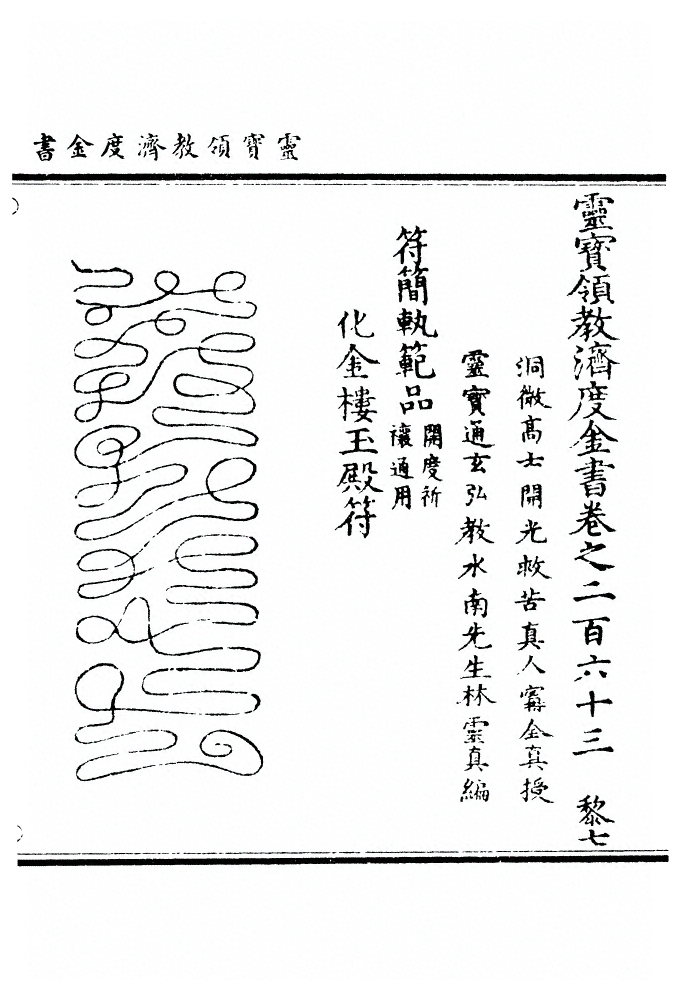 靈寶領教濟度金書
靈寶領教濟度金書卷之二百六十三 黎七
洞微高士開光救苦真人甯全真授
靈寶通玄弘教水南先生林靈真編
符簡軌範品 開度祈
禳通用
化金樓玉殿符